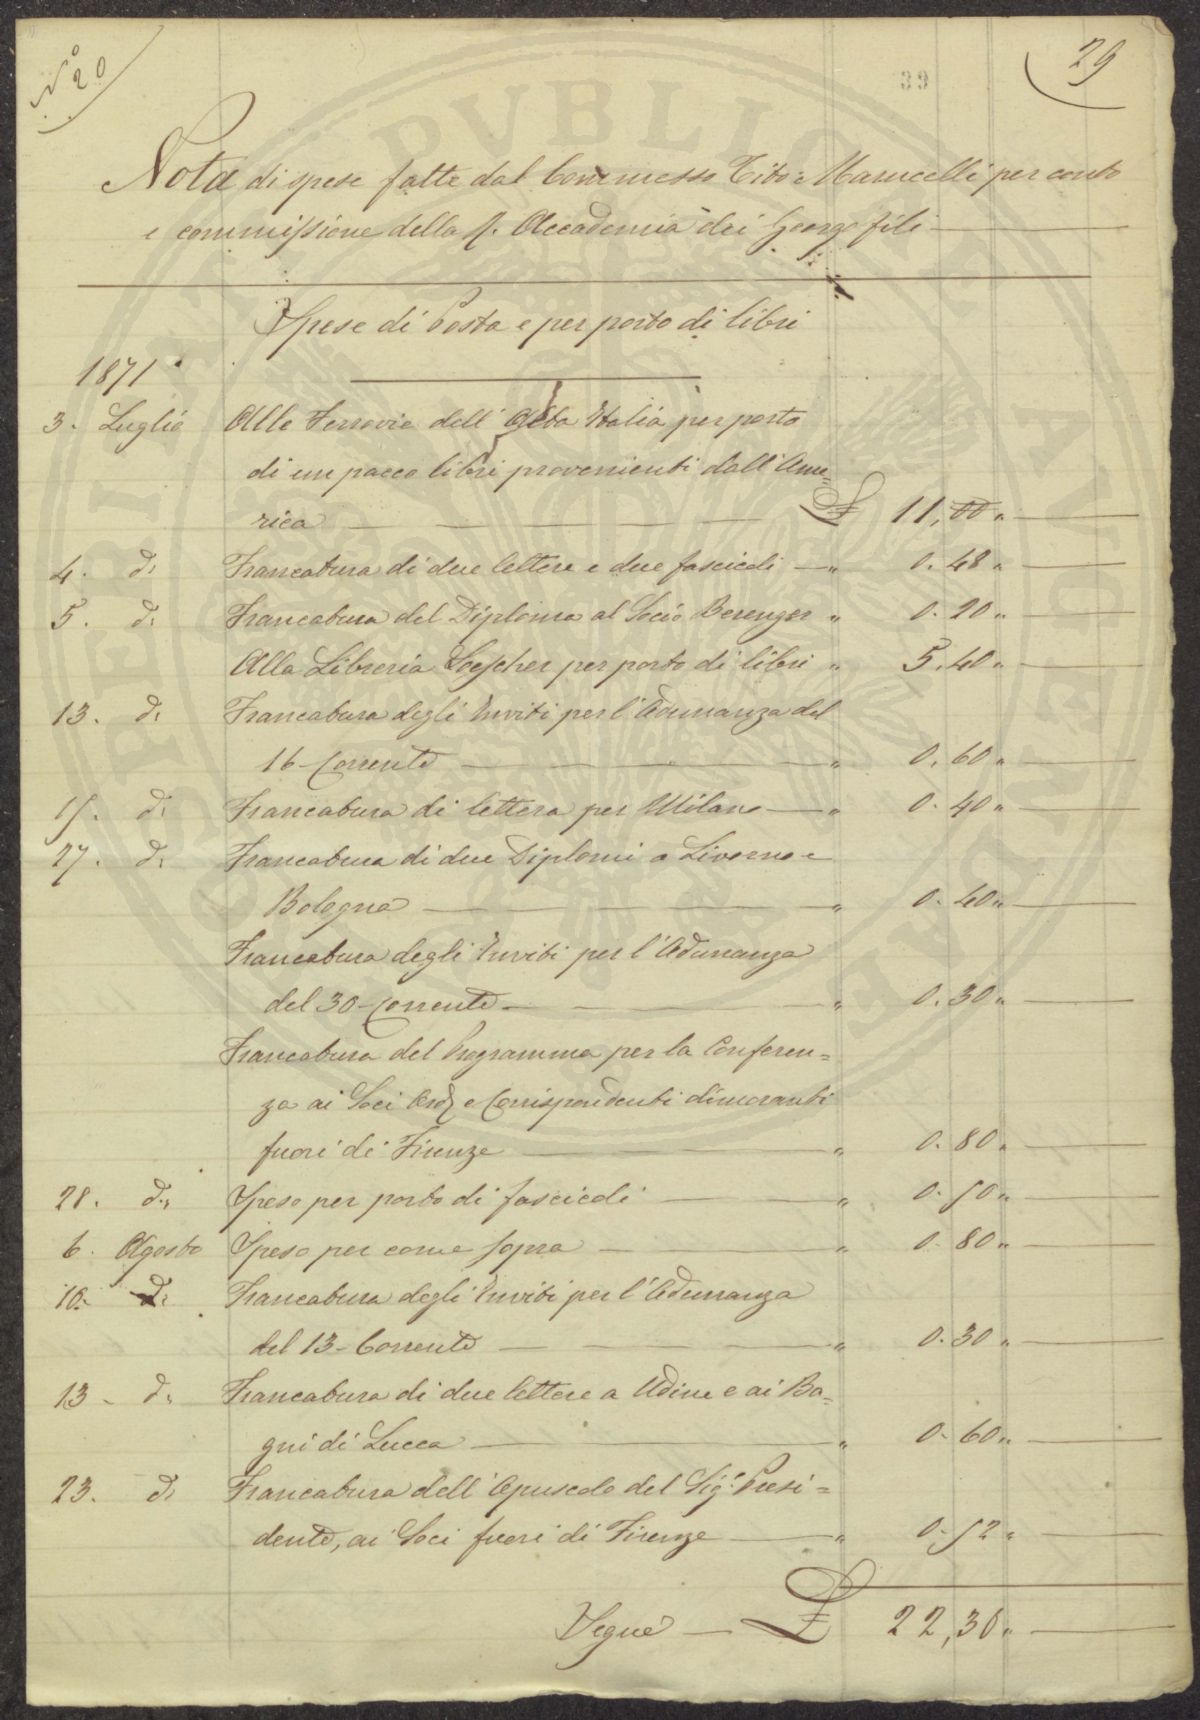 N.o 20
29
33
Nota di spese fatte dal Commesso Tito Marucelli per conto
e commissione della R. Accademia dei Georgofili
Spese di Posta e per porto di libri
1871
3. Luglio Alle Ferrovie dell' Alta Italia per porto
di un pacco libri provenienti dall' Ame=
rica £ 11,00 "
4. do Francatura di due lettere e due fascicoli " 0. 48 "
5. do Francatura del Diploma al Socio Berenger " 0. 20 "
Alla Libreria Loescher per porto di libri " 5. 40 "
13. do Francatura degli Inviti per l'Adunanza del
16 - Corrente " 0. 60 "
15. do Francatura di lettera per Milano " 0. 40 "
27. do Francatura di due Diplomi a Livorno e
Bologna " 0. 40 "
Francatura degli Inviti per l'Adunanza
del 30 - Corrente " 0. 30 "
Francatura del Programma per la Conferen=
za ai Soci Ord. e Corrispondenti dimoranti
fuori di Firenze " 0. 80 "
28. do Speso per porto di fascicoli " 0. 50 "
6. Agosto Speso per come sopra " 0. 80 "
10. do Francatura degli Inviti per l'Adunanza
del 13 - Corrente " 0. 30 "
13 - do Francatura di due lettere a Udine e ai Ba=
gni di Lucca " 0. 60 "
23. do Francatura dell' Opuscolo del Sig.r Presi=
dente, ai Soci fuori di Firenze " 0. 52 "
Segue £ 22,30 "